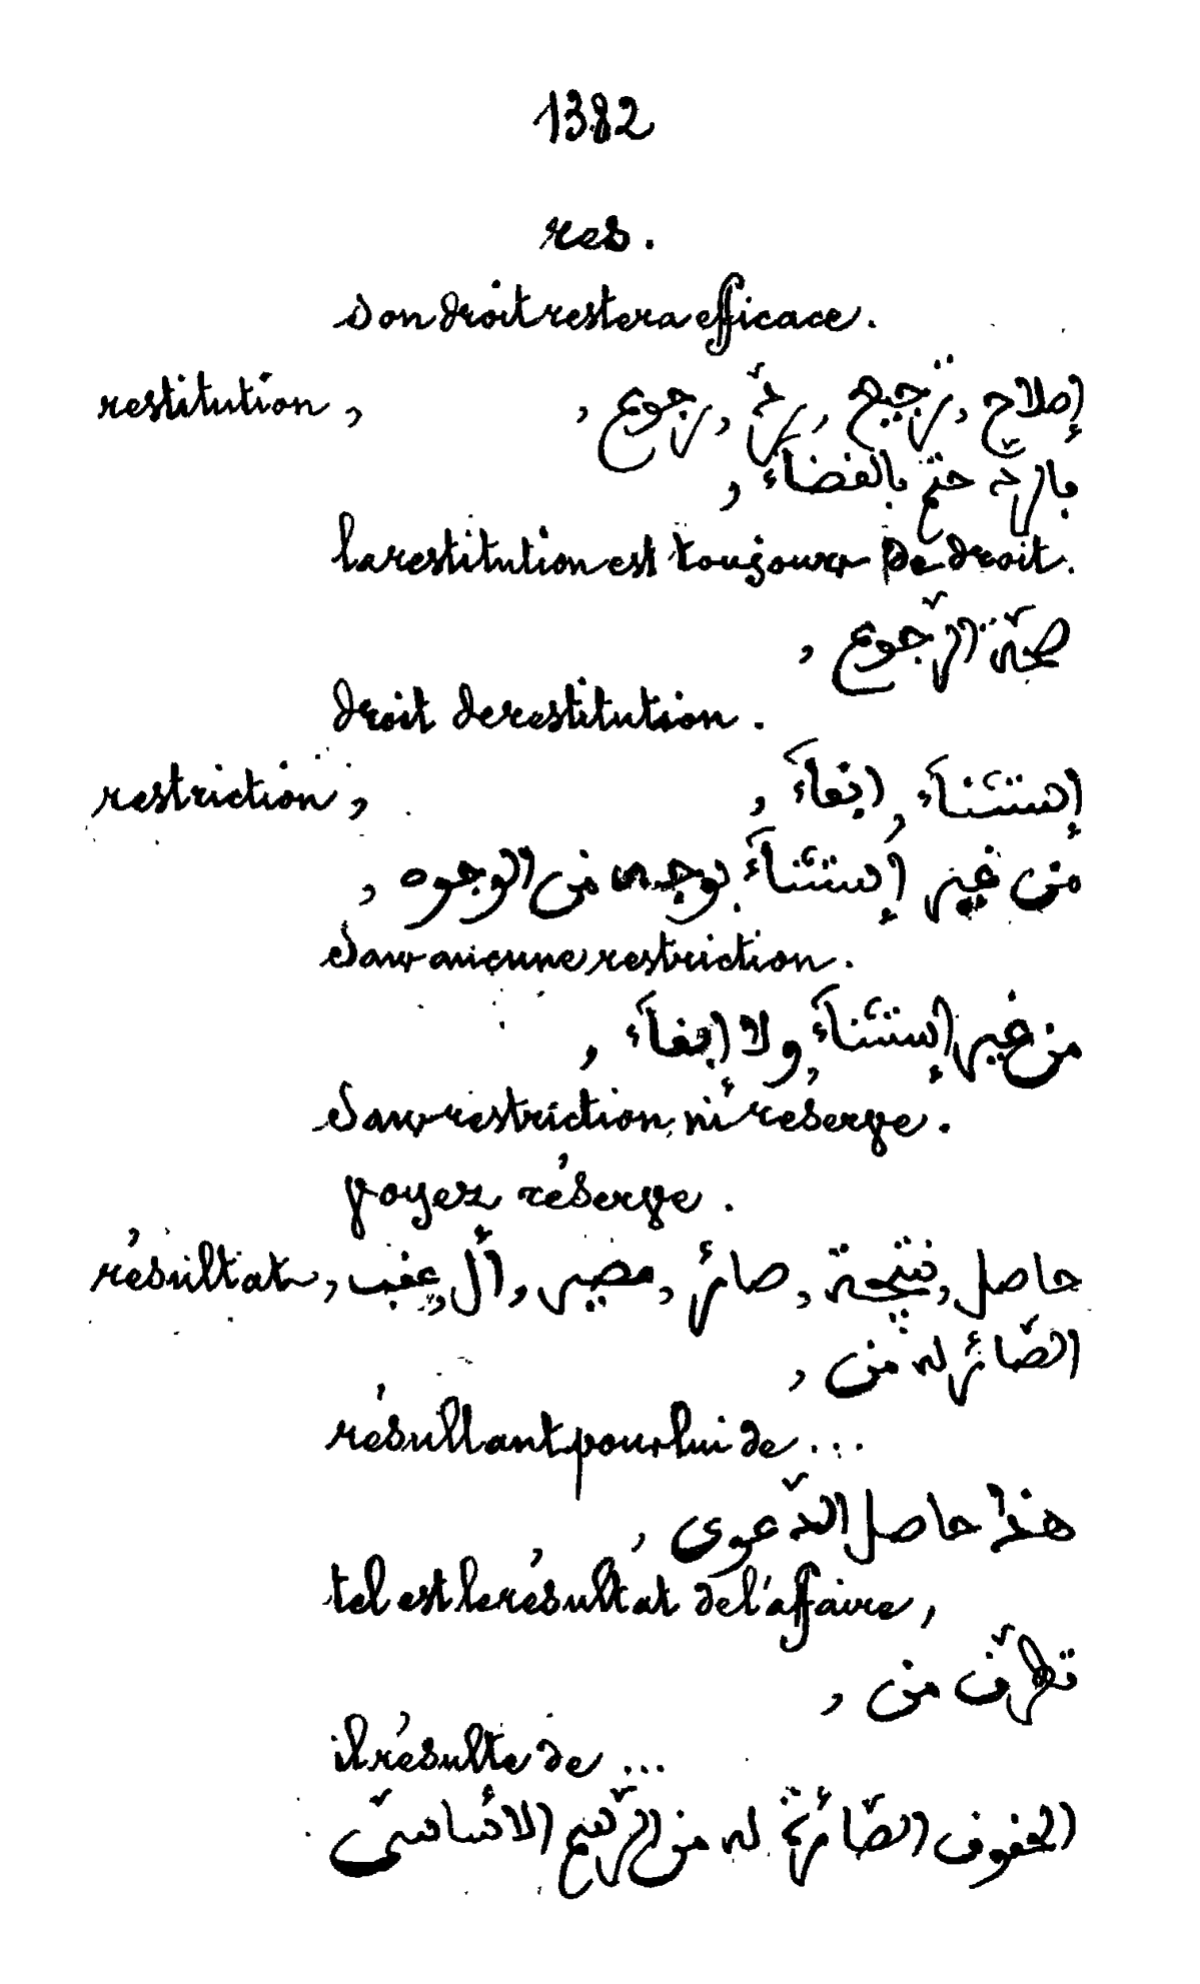 1382
res.
son droit restera efficace.
restitution, إصلاح, ترجيع, ردّ, رجوع,
بالردّ حتم بالقضآء,
la restitution est toujours de droit.
صحّة الرّجوع,
droit de restitution.
restriction, إستثنآء, ابقآء,
من غير إستثنآء بوجه من الوجوه,
Sans aucune restriction.
من غير إستثنآء ولا إبقآء,
Sans restriction, ni réserve.
voyez réserve.
résultat, حاصل, نتيجة, صائر, مصير, أل, عقب,
الصّائر له من,
résultant pour lui de...
هذا حاصل الدّعوى,
tel est le résultat de l'affaire,
تطرّق من,
il résulte de...
الحقوق الصّائرة له من الرّسم الأساسيّ